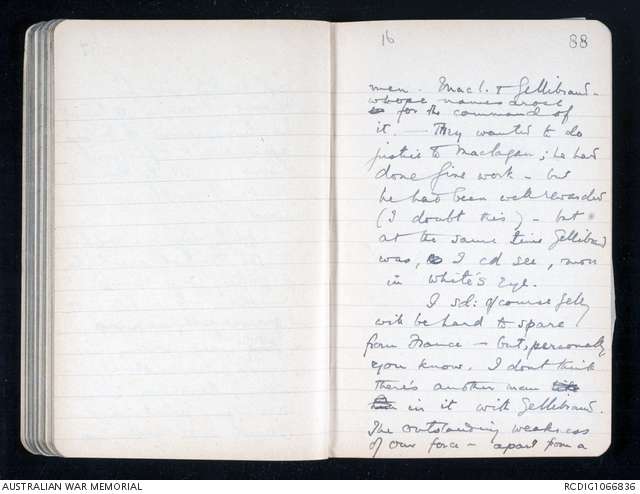 16
88
men. Macl. & Gellibrand -
whose names arose
for the command of
it. — They wanted to do
justice to Maclagan; he had
done fine work - but
he had been well rewarded
(I doubt this) - but
at the same time Gellibrand
was, I cd see, more
in White's eye.
I sd: of course Gelly
will be hard to spare
from France - but, personally
you know, I dont think
there's another man
in it with Gellibrand.
The outstanding weakness
of our force - apart from a
AUSTRALIAN WAR MEMORIAL
RCDIG1066836